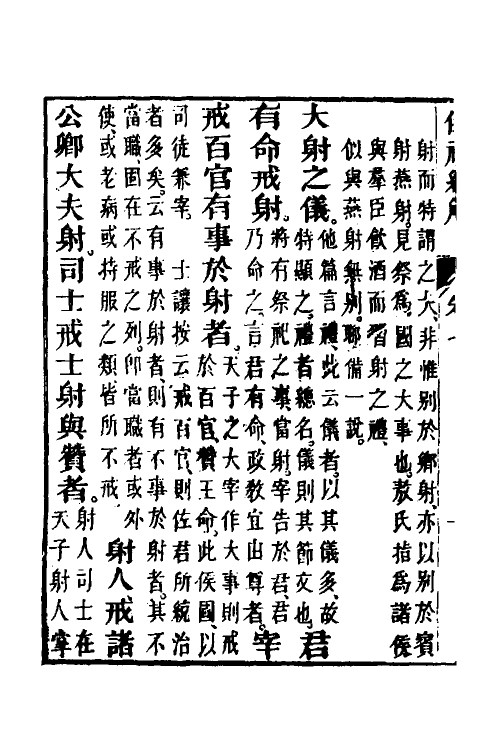 射而特謂之大、非惟別於鄉射、亦以別於賓
射燕射。見祭爲國之大事也。敖氏指爲諸侯
與羣臣飲酒而習射之禮、
似與燕射無別。聊備一說。
大射之儀。他篇言禮、此云儀者、以其儀多、故特顯之。禮者總名。儀則其節文也。君
有命戒射。將有祭祀之事、當射。宰告於君、君乃命之、言君有命、政教宜由尊者。宰
戒百官有事於射者。天子之大宰作大事則戒於百官、贊王命。此侯國、以
司徒兼宰。 士讓按云戒百官、則佐君所統治
者多矣。云有事於射者、則有不事於射者。其不
當職、固在不戒之列。卽當職者或外
使、或老病或持服之類、皆所不戒。射人戒諸
公卿大夫射。司士戒士射與贊者。射人司士在天子射人掌